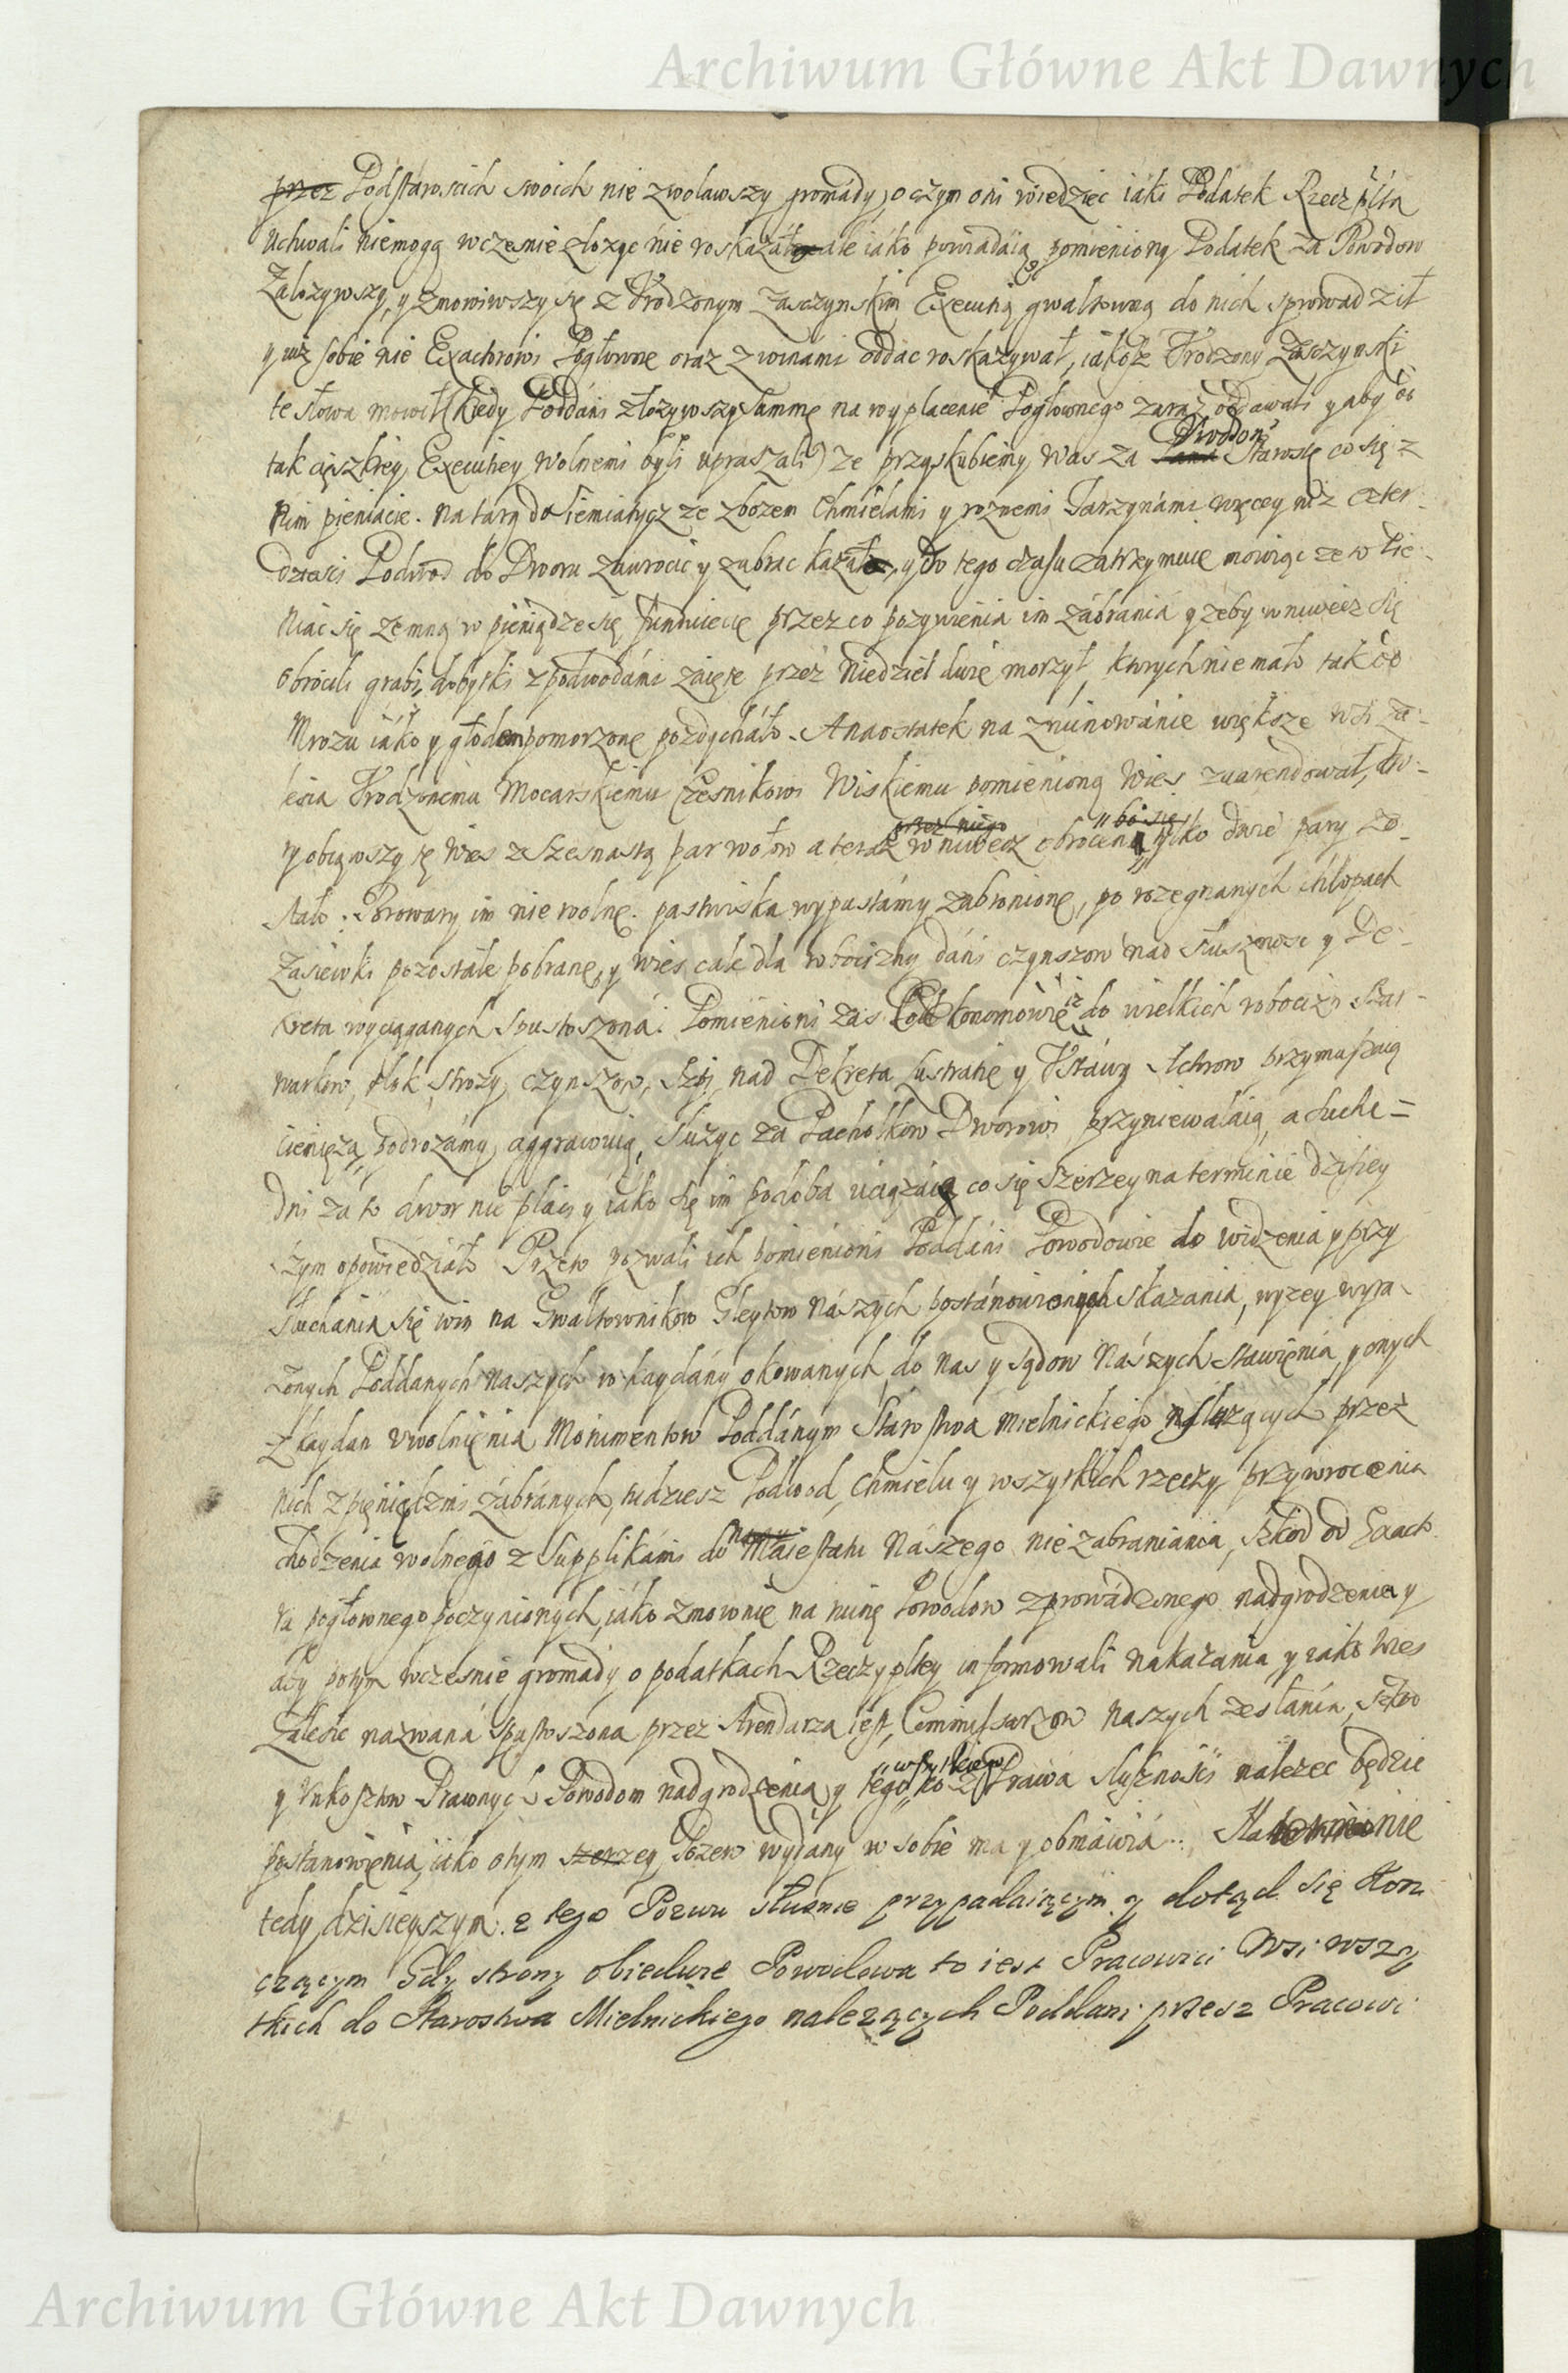 Archiwum Główne Akt Dawnych
przez Podstarościch swoich nie zwoławszy gromády, o czym oni wiedziec iáki Podátek Rzecz plta
uchwali niemogą wczesnie złozyc nie roskazał ale iáko powiadáią pomieniony Podatek za Powodow
Załozywszy, y zmowiwszy się z Urodzonym Zasczynskim Execuią gwałtowną do nich sprowadził
y iuz sobie nie Exactorowi Pogłowne oraz z winámi oddac roskazywał, iákoże Urodzony Zasczynski
te słowa mowił (kiedy Poddáni złozywszy Summę na wypłacenie Pogłownego zaraz oddawali y aby od
tak cięszkiey Executiey wolnemi byli upraszali) ze przyskubiemy was za Starostę co się z
Nim pieniacie. na targ do Siemiatycz ze zbozem Chmielami y roznemi Jarzynámi więcey niz czter-
dziesci Podwod do Dworu zawrocic y zabrac kazał, y do tego czasu zatrzymuie mowiąc ze w Pie-
niác się ze mną w pieniądze się funduiecie przez co pozywienia im zábrania y zeby wniwecz się
obrocili grabi, dobytki z podwodámi zaięte przez Niedziel dwie morzył, ktorych nie mało tak od
Mrozu iáko y głodem pomorzone pozdychało. A naostatek na zruinowánie większe Wsi Za-
lesia Urodzonemu Mocarskiemu Czesnikowi Wiskiemu pomienioną Wies zaarendował, kto-
ry obiąwszy tę Wies z szesnastą par wołow a teraz wniwecz obrocena tylko dwie pary zo-
stało. Browary im nie wolne. pastwiska wypustámy zabronione, po rozegnanych chłopach
Zasiewki pozostałe pobrane, y wies całe dla robocizny dáni czynszow nad słusznosc y De-
kreta wyciąganych spustoszoná. Pomienioni zas do wielkich robocizn Szar-
warkow, tłuk, strozy, czynszow, nad Dekreta Lustratię y Ustáwy Actorow przymuszaią
ciemięzą, podrozámy aggrawuią, słuzyc za Pachołkow Dworowi przyniewalaią, a suche=
dni za to dwor nie płaci y iáko się im podoba uciązaią co się szerzey na terminie dzisiey
szym opowiedziáło Przeto pozwali ich pomienioni Poddáni Powodowie do widzenia y przy
słuchania się win na Gwałtownikow Gleytow Nászych postánowionych skazania, wyzey wyra-
zonych Poddanych Naszych w kaydány okowanych do Nas y Sądow Nászych stawienia y onych
z kaydan uwolnienia Monimentow Poddánym Starostwa Mielnickiego słuzących przez
nich z pieniądzmi zábránych, tudziesz Podwod, Chmielu y wszystkich rzeczy przywrocenia
chodzenia wolnego z Supplikámi do Maiestatu Nászego nie zabraniania, szkod od Exacto
ra pogłownego poczynionych, iáko zmownie na ruinę Powodow zprowádzonego nadgrodzenia y
aby potym wczesnie gromady o podatkach Rzeczypltey informowali nakázania y iáko Wies
Zalesie nazwaná spustoszona przez Arendarza iest, Commissarzow Naszych zesłania, Szkod
y Unkosztow Prawnych Powodom nadgrodzenia, y tego wszystkiego co z Prawa słusznosci nalezec będzie
postanowienia, iáko o tym szerzey Pozew wydány w sobie ma y obmáwia. Na terminie
tedy dzisieyszym z tego Pozwu słusznie przypadaiącym y dotąd się kon
czącym Gdy strony obiedwie Powodowa to iest Pracowici Wsi wszy
tkich do Starostwa Mielnickiego nalezących Poddani przesz Pracowi
Archiwum Główne Akt Dawnych